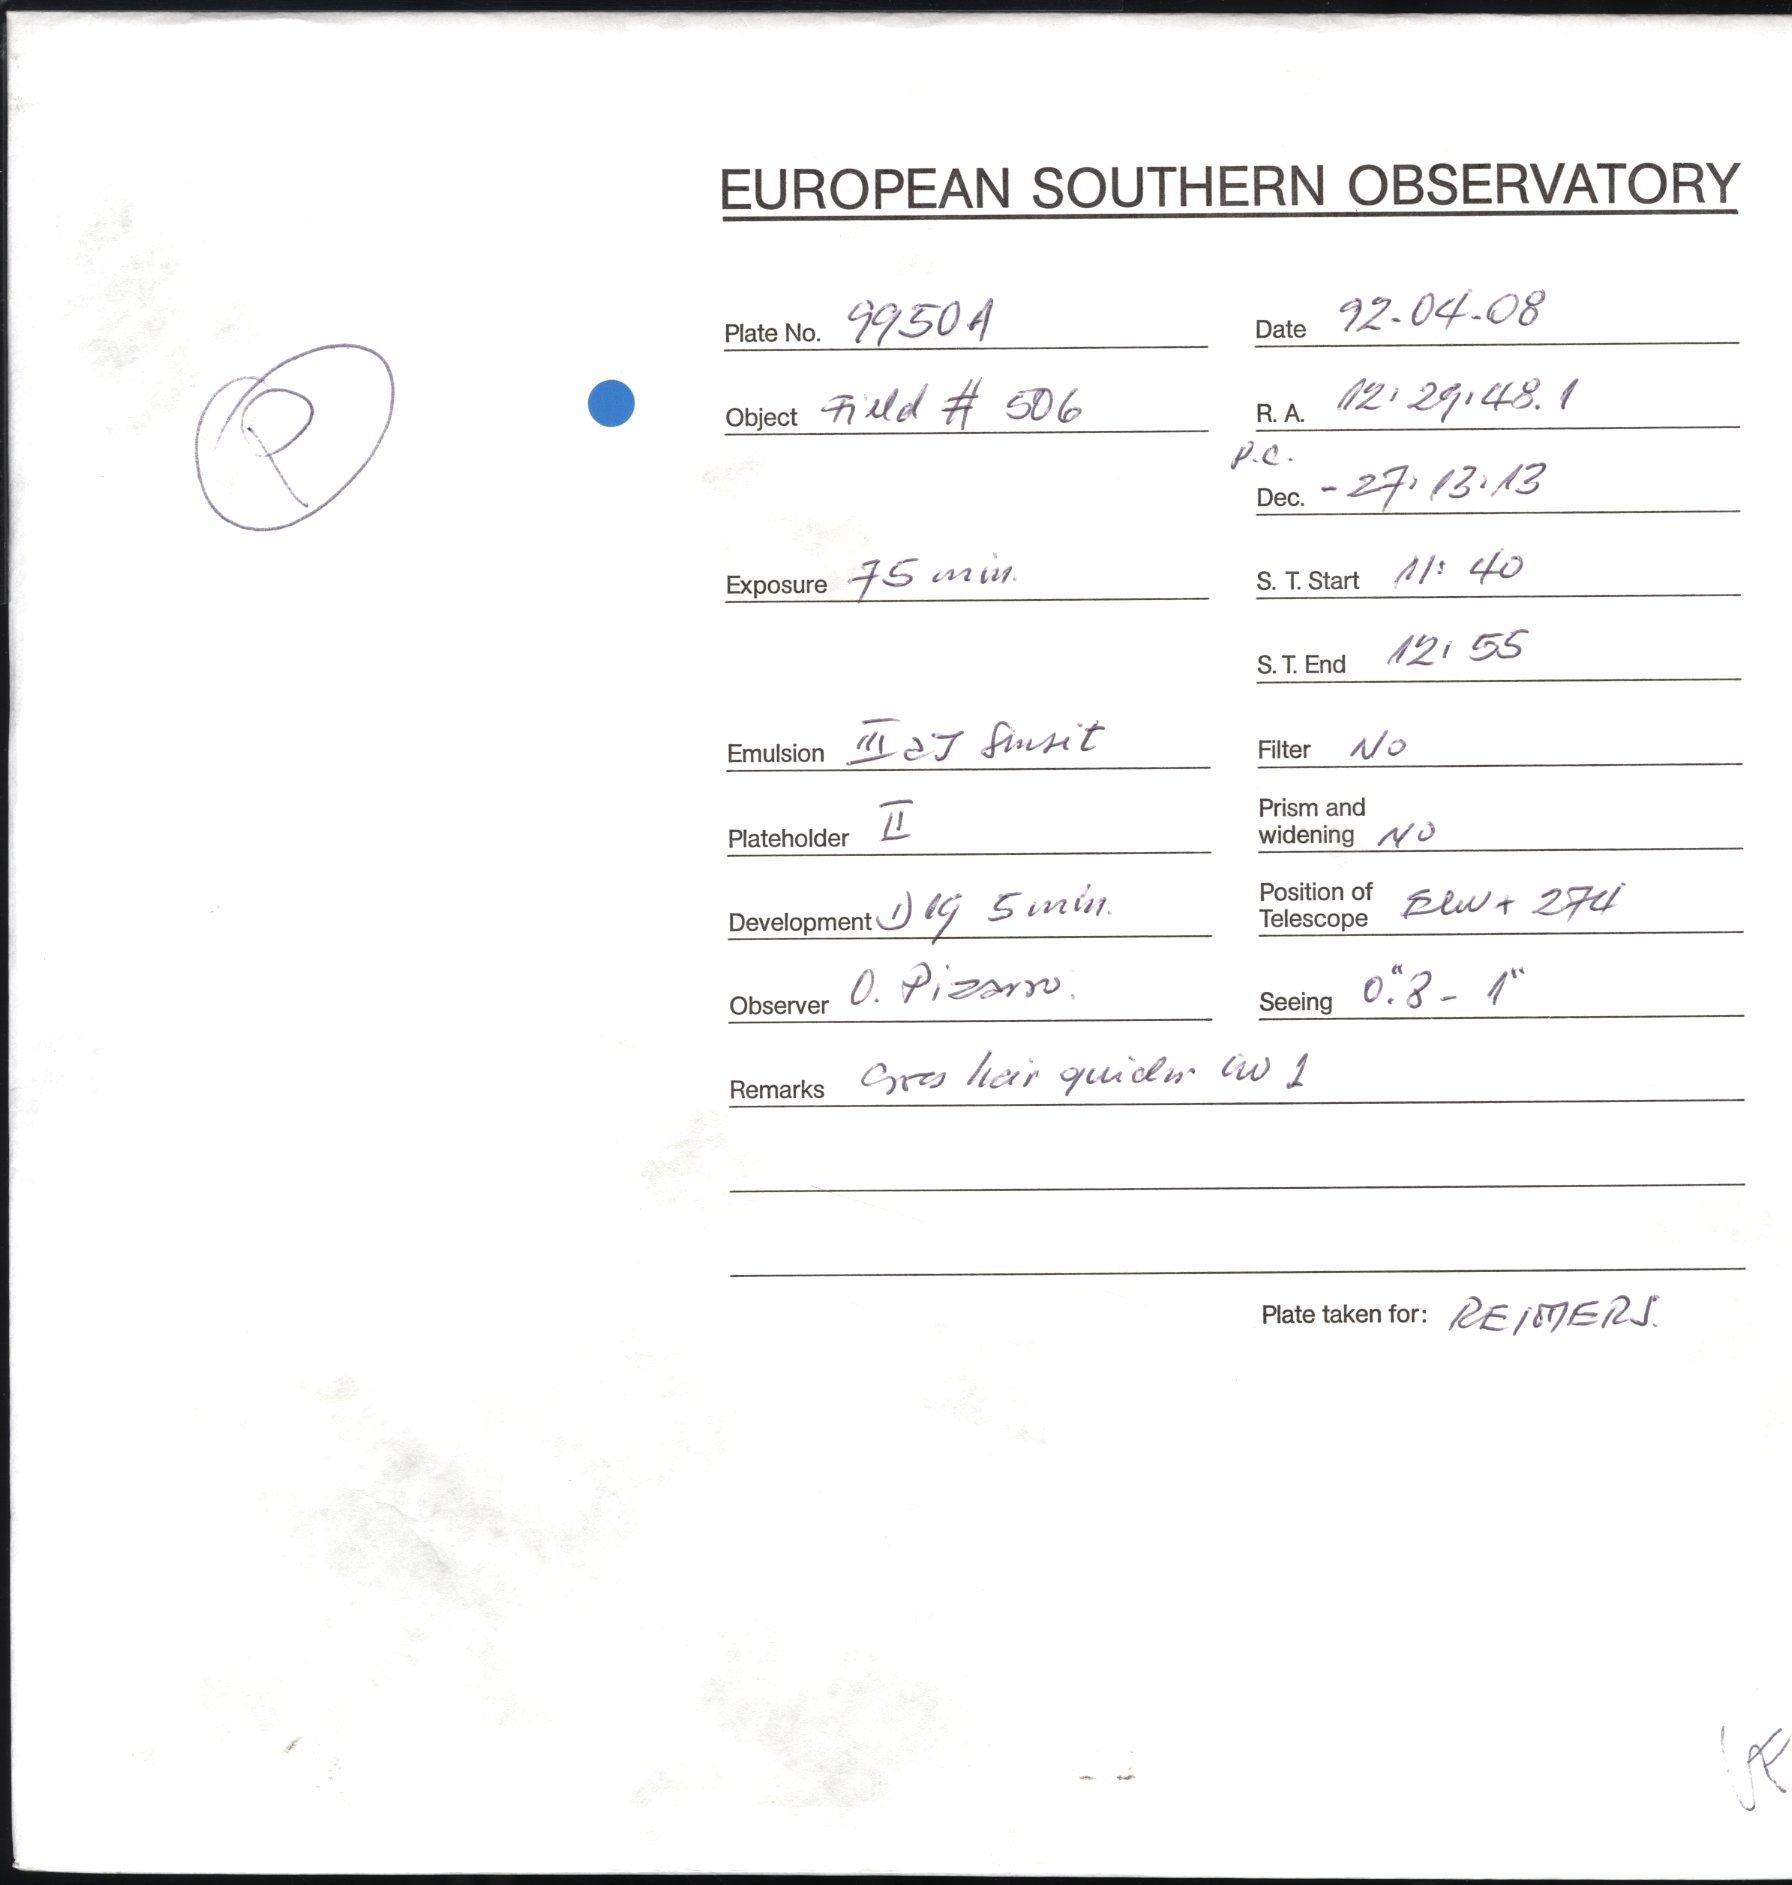 EUROPEAN SOUTHERN OBSERVATORY
Plate No. 9950A Date 92-04-08
P
Object Field # 506 R. A. 12:29:48.1
P.C.
Dec. -27:13:13
Exposure 75 min. S. T. Start 11:40
S. T. End 12:55
Emulsion III aJ Sensit Filter No
Plateholder II Prism and
widening NO
Development D19 5 min. Position of
Telescope + 274
Observer O. Pizarro. Seeing 0".8 - 1"
Remarks Cross hair guider 1
Plate taken for: REIMERS.